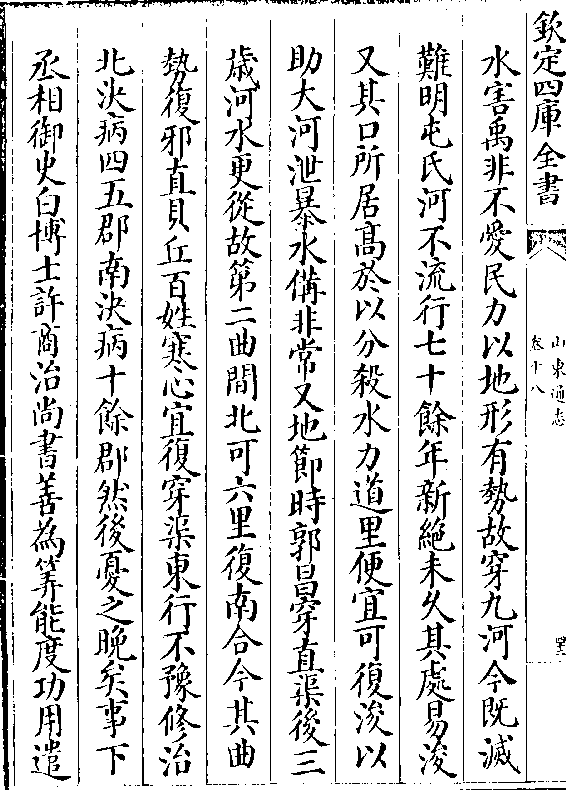 欽定四庫全書
山東通志
卷十八
水害禹非不愛民力以地形有勢故穿九河今既滅
難明屯氏河不流行七十餘年新絶未久其處易浚
又其口所居髙於以分殺水力道里便宜可復浚以
助大河泄暴水備非常又地節時郭昌穿直渠後三
歳河水更從故第二曲間北可六里復南合今其曲
勢復邪直貝丘百姓寒心宜復穿渠東行不豫修治
北決病四五郡南決病十餘郡然後憂之晚矣事下
丞相御史白博士許商治尚書善為筭能度功用遣